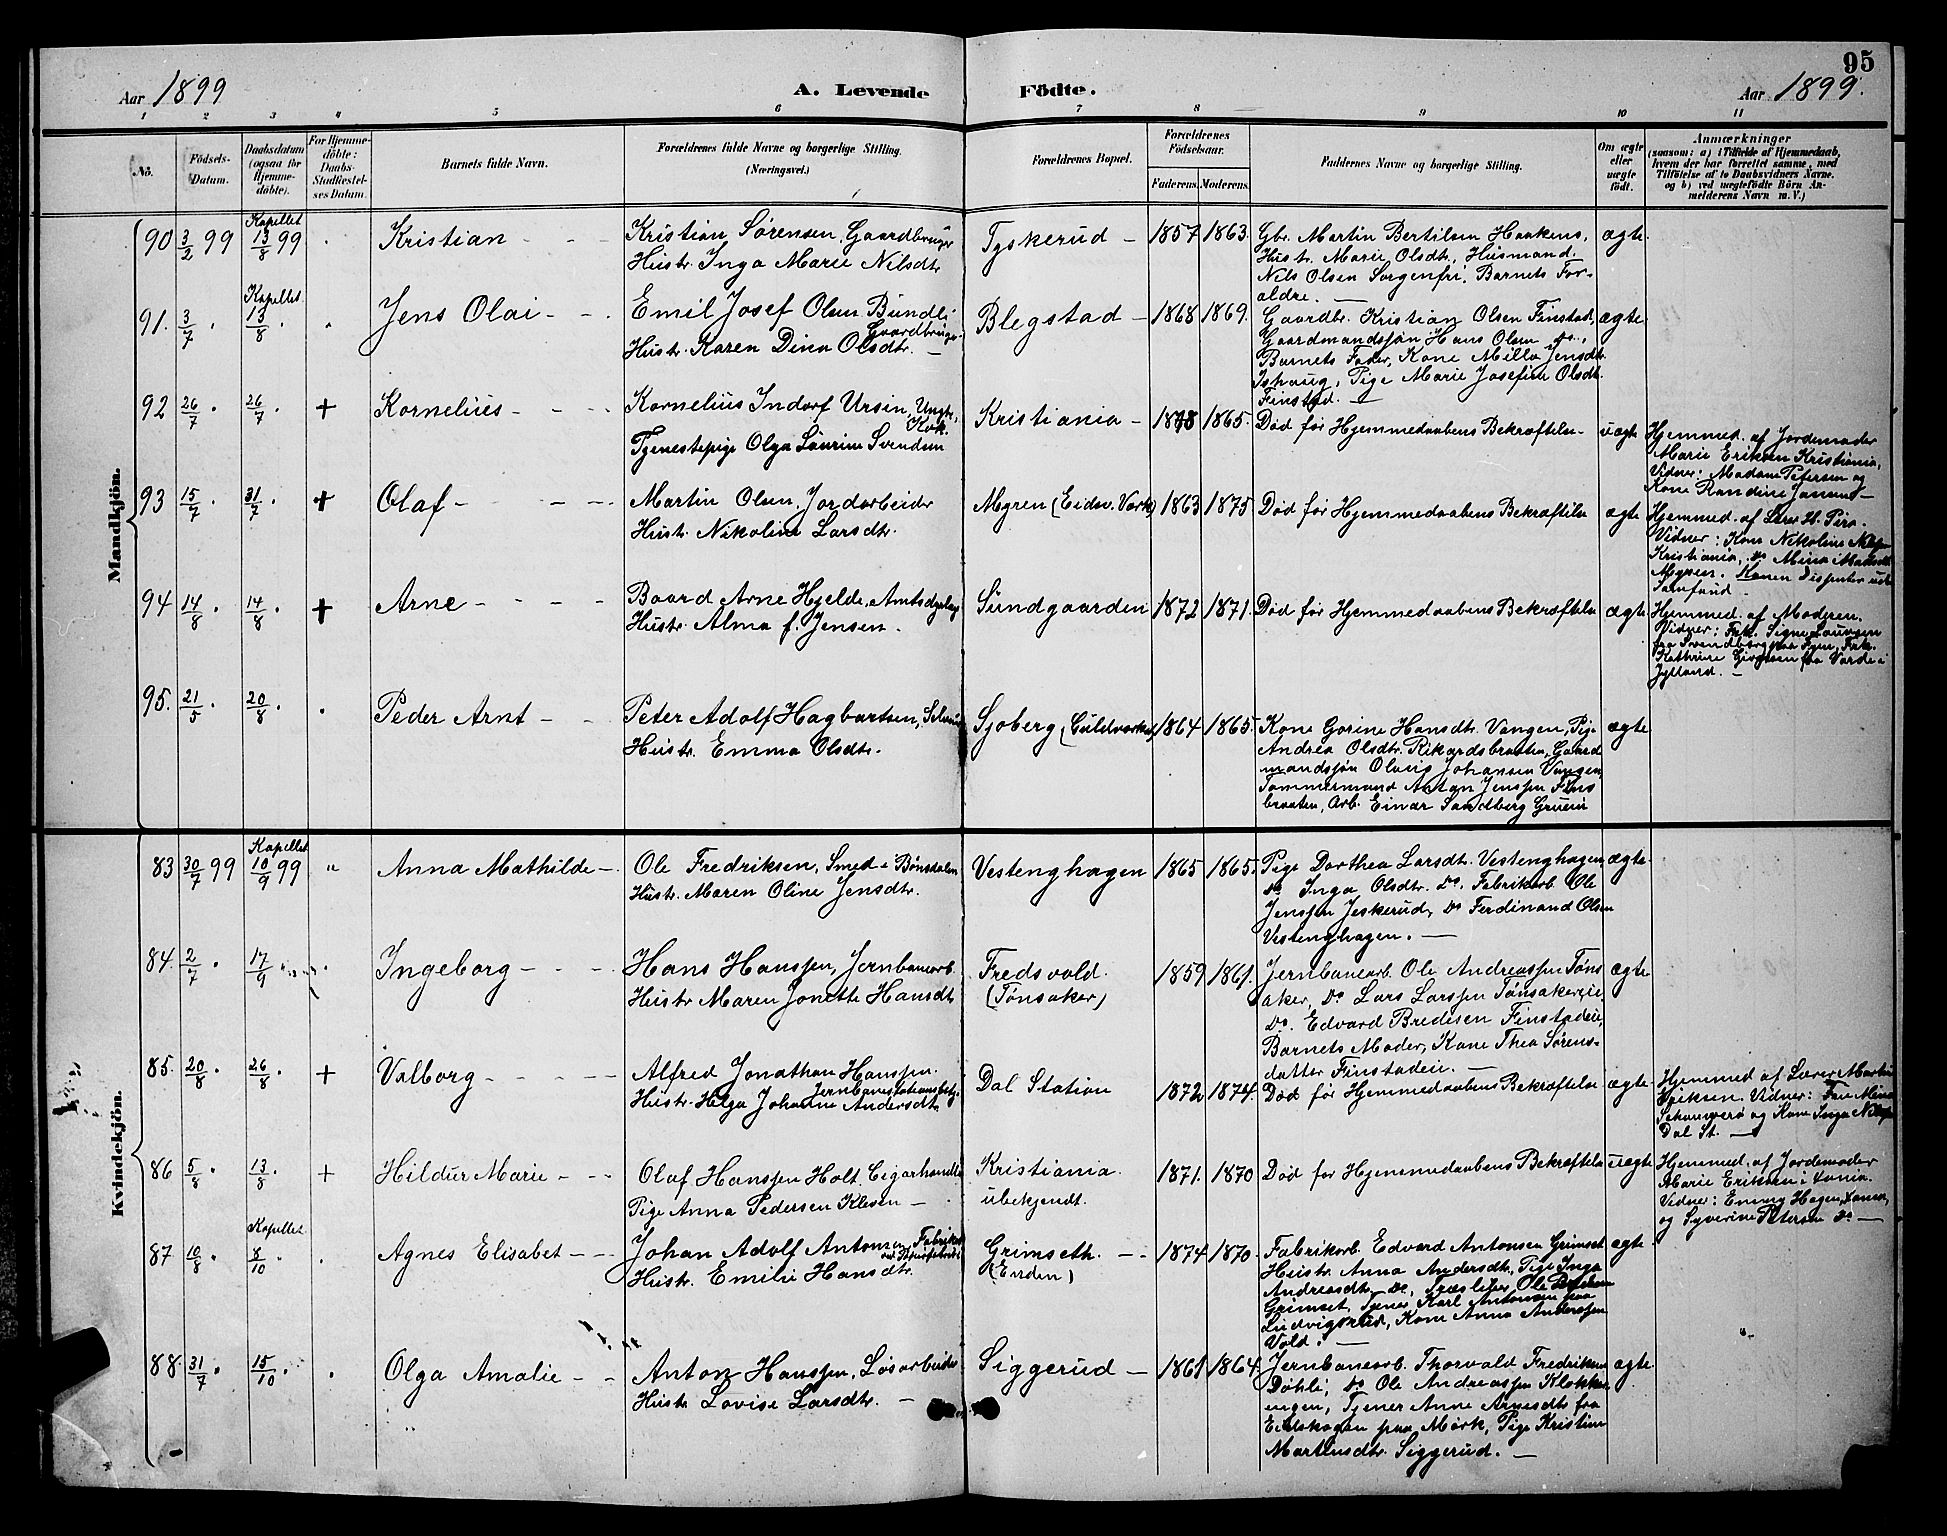 95
Aar 1899
A. Levende Födte.
Aar 1899.
1 2 3 4 5 6 7 8 9 10 11
No.
Födsels-Datum.
Daabsdatum (ogsaa for Hjemme-döbte).
For Hjemme-döbte: Daabs-Stadfæstel-ses Datum.
Barnets fulde Navn.
Forældrenes fulde Navne og borgerlige Stilling.
(Næringsvei.)
Forældrenes Bopæl.
Forældrenes Födselsaar.
Faderens. Moderens.
Faddernes Navne og borgerlige Stilling.
Om ægte eller uægte født.
Anmærkninger
(saasom: a) i Tilfælde af Hjemmedaab,
hvem der har forrettet samme, med
Tilföielse af to Daabsvidners Navne.
og b) ved uægtefödte Börn An-
melderens Navn m. V.)
Mandkjön.
90 3/2 99 Kapellet 13/8 99 Kristian
Kristian Sørensen, Gaardbruger
Hustr. Inga Marie Nilsdtr
Tyskerud 1857 1863.
Gbr. Martin Bertilsen Haakens,
Hustr. Marie Olsdtr, Husmand
Nils Olsen Sorgenfri, Barnets For-
ældre.
ægte.
91. 3/7 Kapellet 13/8 Jens Olai
Emil Josef Olsen Bundli
Gaardbruger
Hustr. Karen Dina Olsdtr.
Blegstad 1868 1869.
Gaardbr. Kristian Olsen Finstad,
Gaardmandsøn Hans Olsen Do.,
Barnets Fader, Kone Milla Jensdtr
Ishaug, Pige Marie Josefine Olsdtr.
Finstad.
ægte
92 26/7 26/7 + Kornelius
Kornelius Indorf Ursin, Ungk.
Kok.
Tjenestepige Olga Laurine Svendsen
Kristiania 1878 1865.
Død før Hjemmedaabens Bekræftelse
uægte
Hjemmed. af Jordemoder
Marie Eriksen Kristiania,
Vidner: Madam Petersen og
Kone Randine Jansen
93 15/7 31/7 + Olaf
Martin Olsen, Jordarbeider
Hustr. Nikoline Larsdtr.
Myren (Eidsv. Værk) 1863 1875
Død før Hjemmedaabens Bekræftelse
ægte
Hjemmed. af Lærer H. Piro.
Vidner: Kone Nikoline
Kristiania, Do Mina
Myren. Konen Dispenter
Samfund.
94 14/8 14/8 + Arne
Baard Arne Hjelde, Amtsdyrlæge
Hustr. Alma f. Jensen.
Sundgaarden 1872 1871.
Død før Hjemmedaabens Bekræftelse
ægte
Hjemmed. af Moderen.
Vidner: Frk. Signe Laursen
fra Svendborg paa Fyen, Frk.
Kathrine fra Varde i
Jylland.
95. 21/5 20/8 Peder Arnt
Peter Adolf Hagbartsen,
Hustr. Emma Olsdtr.
Sjoberg (Guldværket) 1864 1865.
Kone Gorine Hansdtr. Vangen, Pige
Andrea Olsdtr. Rikardsbraaten, Gaard
mandsøn Olaus Johansen Vangen,
Tømmermand Anton Jenssen Fins
braaten, Arb. Einar Sandberg
ægte
Kvindekjön.
83 30/7 99 Kapellet 10/9 99 " Anna Mathilde
Ole Fredriksen, Smed i Bønsdalen
Hustr. Maren Oline Jensdtr.
Vestenghagen 1865 1865.
Pige Dorthea Larsdtr. Vestenghagen,
Do Inga Olsdtr. Do. Fabrikarb. Ole
Jenssen Jeskerud, Do Ferdinand Olsen
Vestenghagen.
ægte
84. 2/7 17/9 Ingeborg
Hans Hanssen, Jernbanearb.
Hustr Maren Jonette Hansdtr
Fredsvold.
(Tønsaker)
1859 1861.
Jernbanearb. Ole Andreassen Tøns
aker, Do Lars Larssen Tønsakereie,
Do. Edvard Bredesen Finstadeie,
Barnets Moder, Kone Thea Sørens-
datter Finstadeie.
ægte
85. 20/8 26/8 + Valborg
Alfred Jonathan Hanssen.
Jernbanestationsbetj.
Hustr. Helga Johanne Andersdtr
Dal Station 1872 1874.
Død før Hjemmedaabens Bekræftelse
ægte
Hjemmed af Lærer Martin
Eriksen. Vidner: Frue
og Kone Inga
Dal St.
86 5/8 13/8 + Hildur Marie
Olaf Hanssen Holt, Cigarhandler
Pige Anna Pedersen
Kristiania
ubekjendt.
1871. 1870
Død før Hjemmedaabens Bekræftelse
uægte
Hjemmed. af Jordemoder
Marie Eriksen i Xania.
Vidner: Emmy Hagen, Xania,
og Syverine Petersen Do
87 10/8 Kapellet. 8/10 Agnes Elisabet
Johan Adolf Antonsen, Fabrikarb.
Hustr. Emilie Hansdtr.
Grimseth.
(Enden)
1874 1870.
Fabrikarb. Edvard Antonsen Grimset
Hustr. Anna Andersdtr, Pige Inga
Andreasdtr Do, Træsliber Ole
Grimset, Tjener Karl Antonsen paa
Ludvigsrud, Kone Anna Anderssen
Vold.
ægte
88. 31/7 15/10 Olga Amalie
Anton Hanssen, Løsarbeider
Hustr Lovise Larsdtr.
Siggerud 1861 1864
Jernbanearb. Thorvald Fredriksen
Døhli, Do Ole Andreassen Klokker
engen, Tjener Anne Arnesdtr fra
Eidskogen paa Mørk, Pige Kristine
Martinsdtr. Siggerud.
ægte.